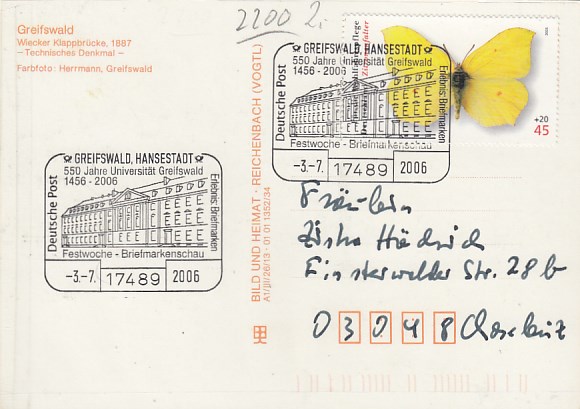 Greifswald
Wiecker Klappbrücke, 1887
– Technisches Denkmal –
Farbfoto: Herrmann, Greifswald
2200 2,-
Zitronenfalter
+20
45
GREIFSWALD, HANSESTADT
550 Jahre Universität Greifswald
1456 - 2006
Deutsche Post
Erlebnis: Briefmarken
Festwoche - Briefmarkenschau
-3.-7. 17489 2006
GREIFSWALD, HANSESTADT
550 Jahre Universität Greifswald
1456 - 2006
Deutsche Post
Erlebnis: Briefmarken
Festwoche - Briefmarkenschau
-3.-7. 17489 2006
BILD UND HEIMAT · REICHENBACH (VOGTL)
A1/III/26/13 · 01 01 1352/34
Fräulein
Finsterwalder Str. 28b
03048